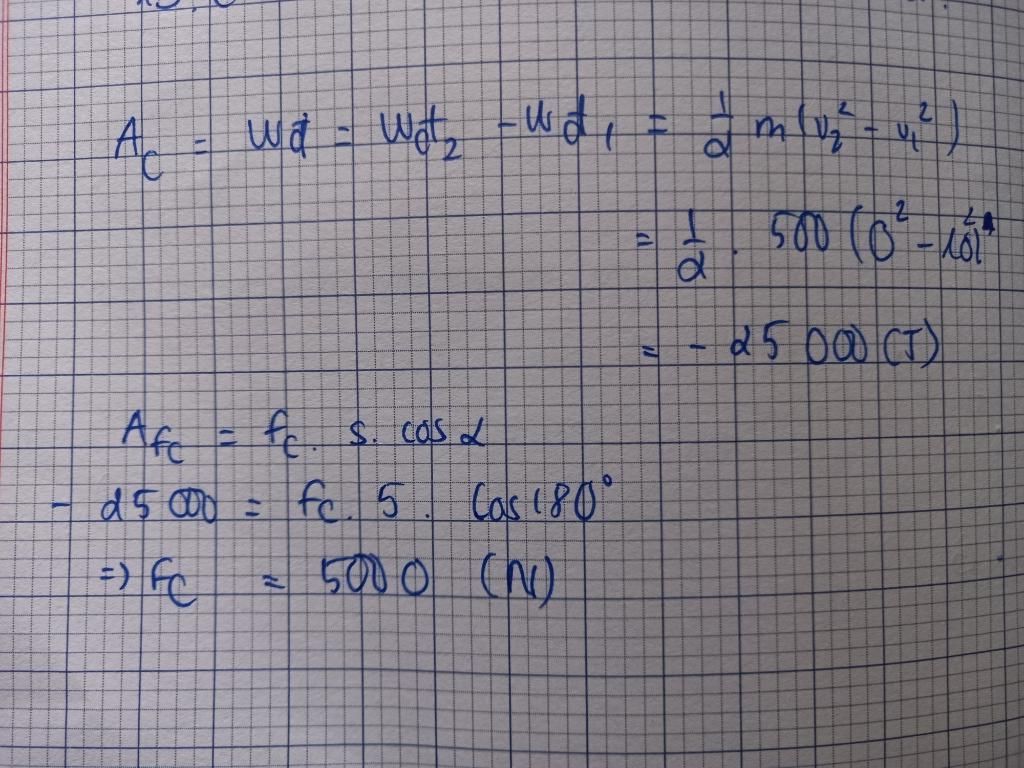 A_C = Wđ = Wđ_2 - Wđ_1 = 1/2 m (v_2^2 - v_1^2)
= 1/2 . 500 (0^2 - 10^2)
= - 25 000 (J)
A_fc = f_c . s . cos α
- 25 000 = f_c . 5 . cos 180°
=> F_C = 5000 (N)